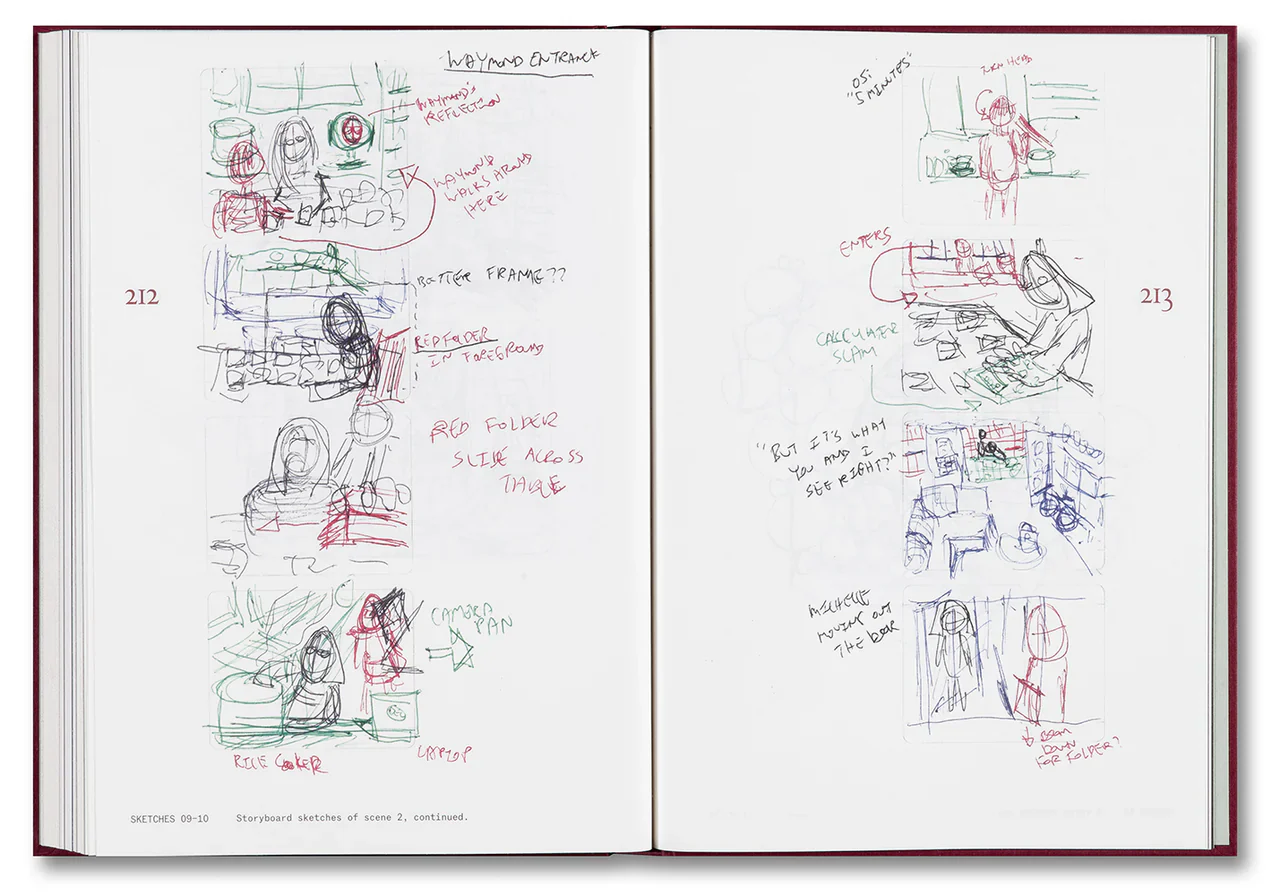 WAYMOND ENTRANCE
WAYMOND'S
REFLECTION
WAYMOND
WALKS AROUND
HERE
212
BETTER FRAME??
RED FOLDER
IN FOREGROUND
RED FOLDER
SLIDE ACROSS
TABLE
CAMERA
PAN
RICE COOKER
LAPTOP
SKETCHES 09–10 Storyboard sketches of scene 2, continued.
"5 MINUTES"
TURN HEAD
ENTERS
213
CALCULATER
SLAM
"BUT IT'S WHAT
YOU AND I
SEE RIGHT?"
MICHELLE
MOVING OUT
THE DOOR
DOWN
FOR FOLDER?